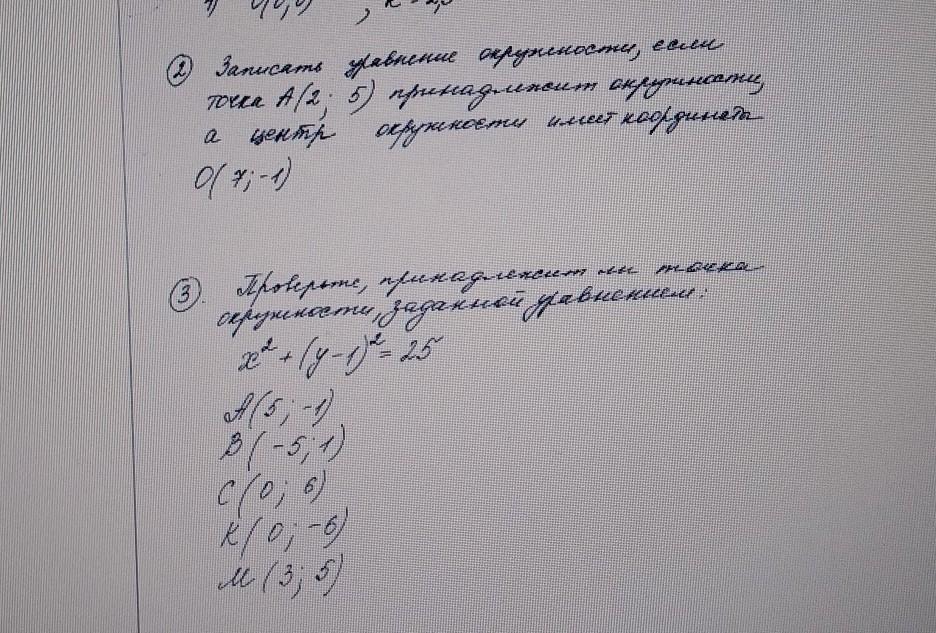 ② Записать уравнение окружности, если
точка А(2; 5) принадлежит окружности,
а центр окружности имеет координаты
О(7;-1)
③. Проверьте, принадлежит ли точка
окружности, заданной уравнением:
x² + (y-1)² = 25
А(5; -1)
В(-5; 1)
С(0; 6)
К(0; -6)
М(3; 5)